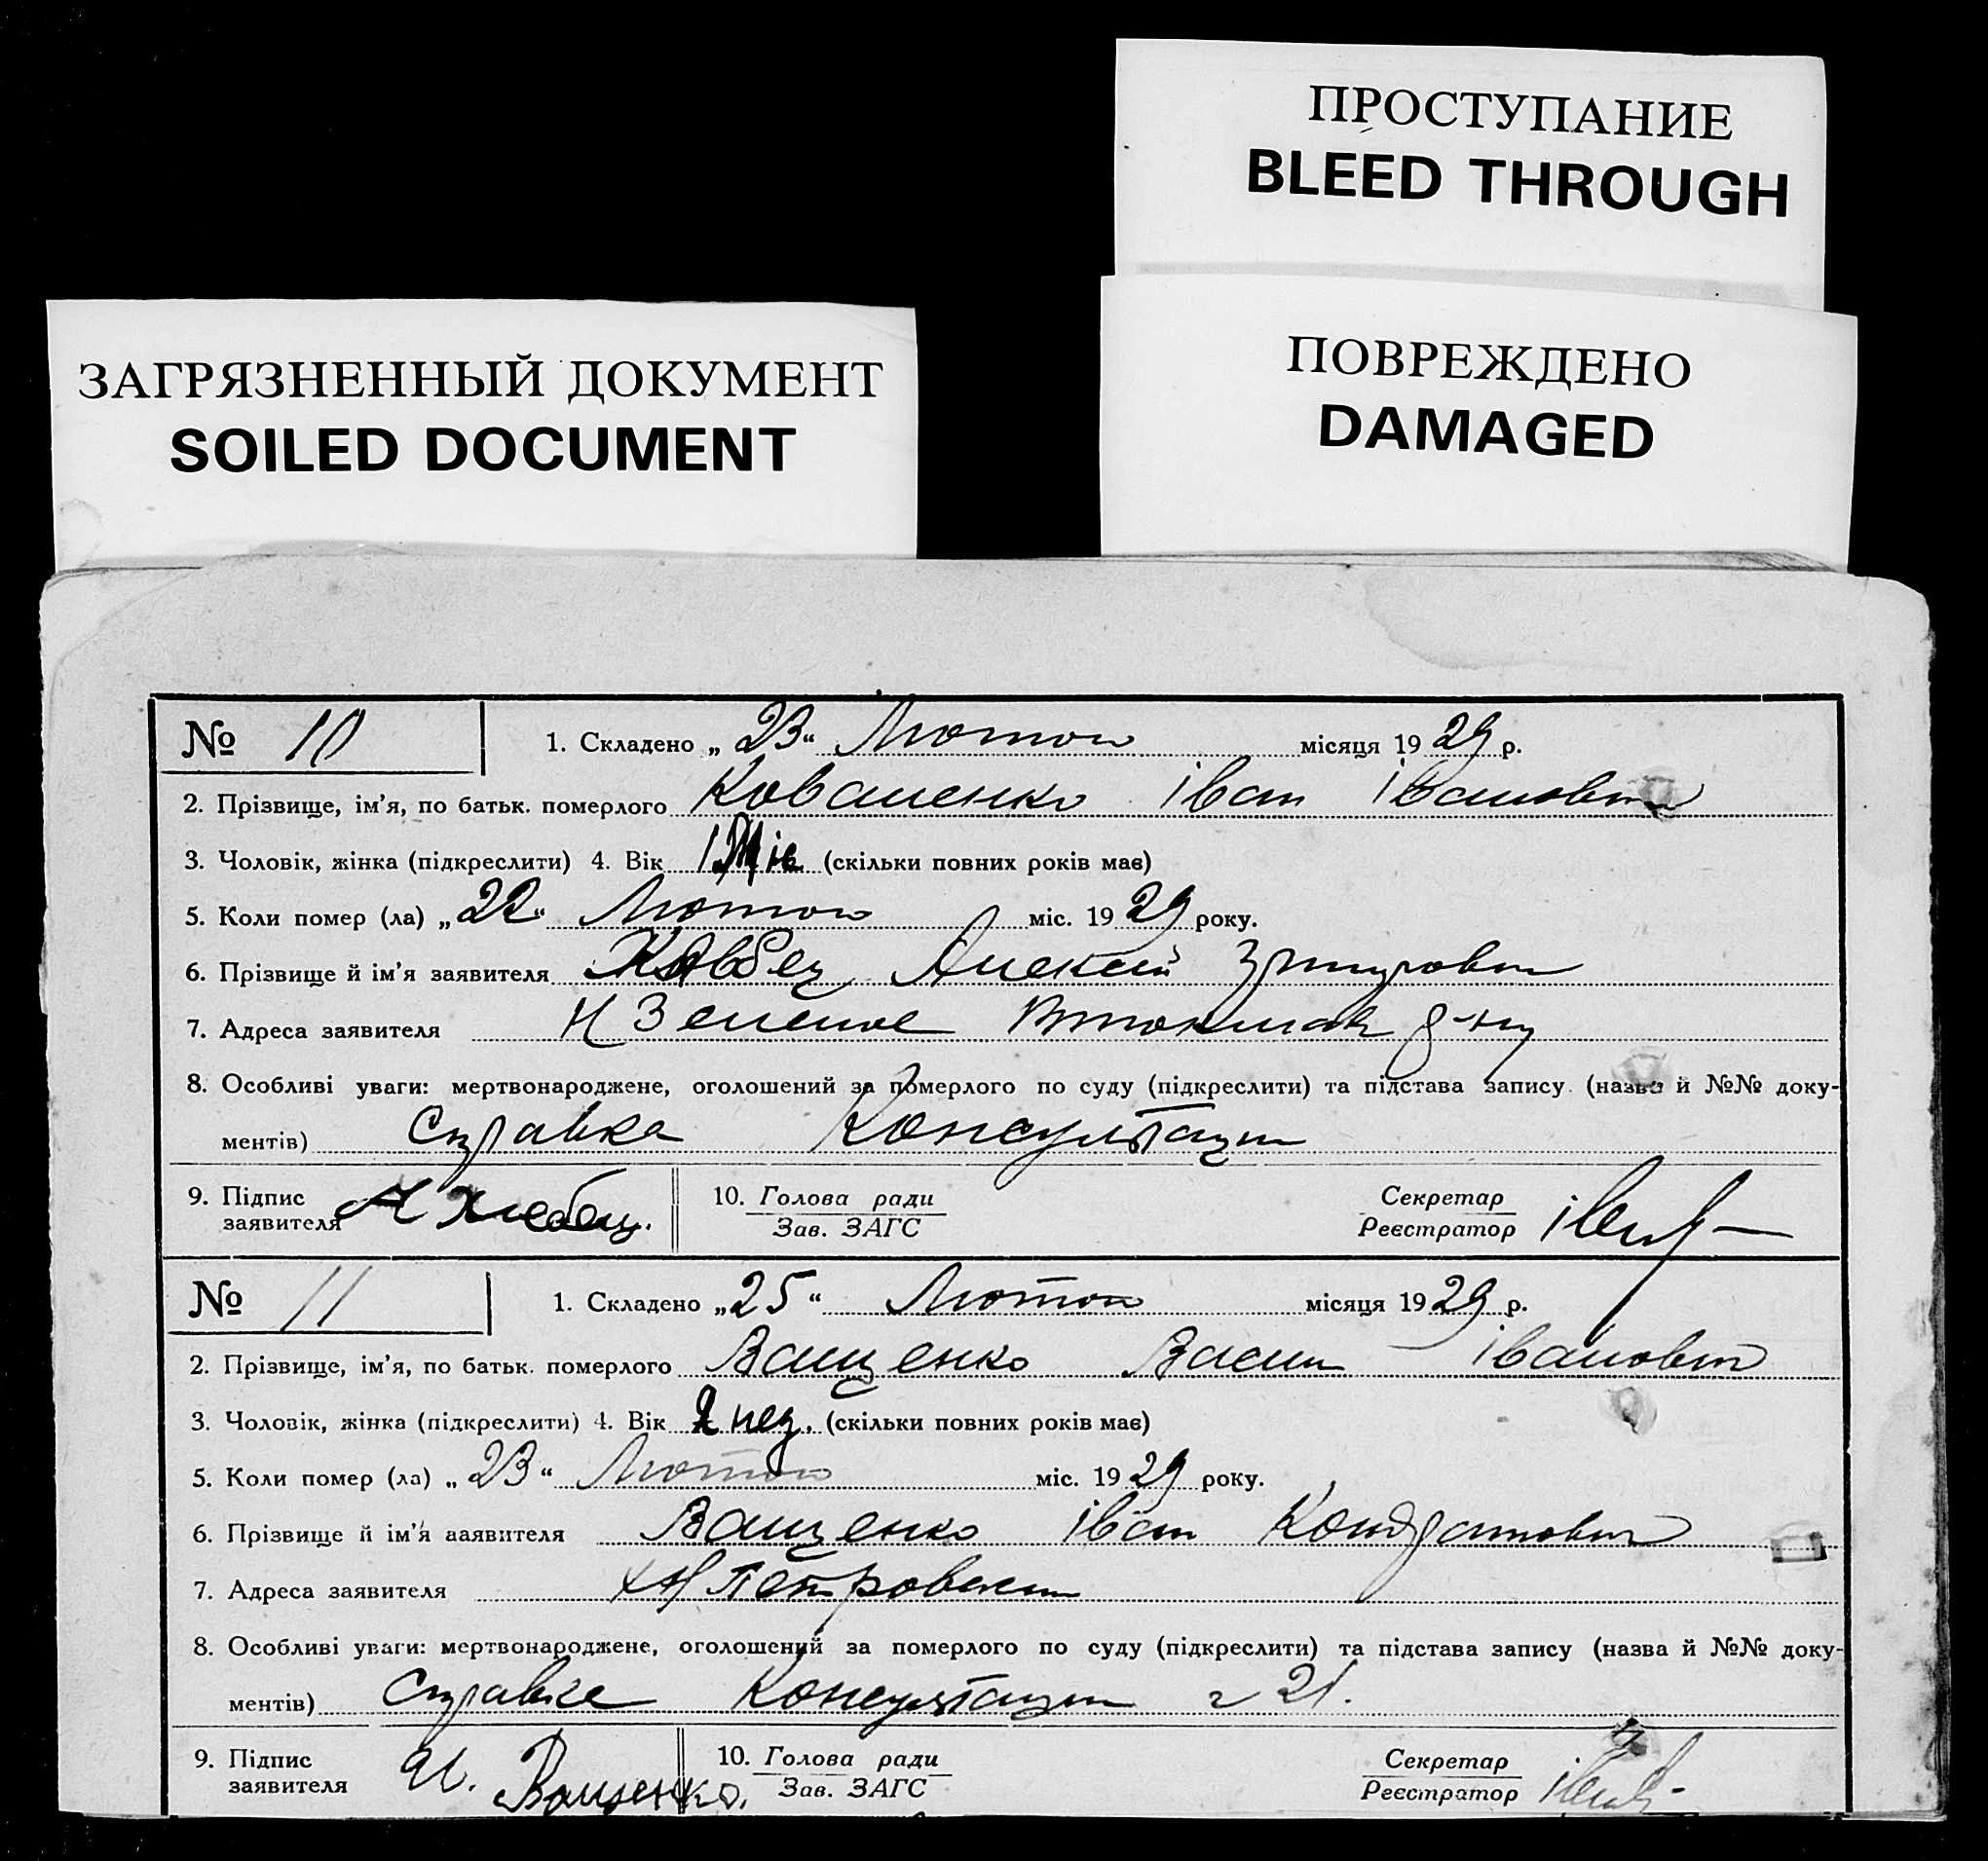 ПРОСТУПАНИЕ
BLEED THROUGH
ПОВРЕЖДЕНО
DAMAGED
ЗАГРЯЗНЕННЫЙ ДОКУМЕНТ
SOILED DOCUMENT
№ 10 1. Складено „ 23 “ Лютого місяця 19 29 р.
2. Прізвище, ім’я, по батьк. померлого Коваленко Іван Іванович
3. Чоловік, жінка (підкреслити) 4. Вік (скільки повних років має)
5. Коли помер (ла) „ 22 “ Лютого міс. 19 29 року.
6. Прізвище й ім’я заявителя Алексей
7. Адреса заявителя Н Зеленое
8. Особливі уваги: мертвонароджене, оголошений за померлого по суду (підкреслити) та підстава запису (назва й №№ доку-
ментів) Справка Консультации
9. Підпис
заявителя А Хлебец.
10. Голова ради
Зав. ЗАГС
Секретар
Реєстратор
№ 11 1. Складено „ 25 “ Лютого місяця 19 29 р.
2. Прізвище, ім’я, по батьк. померлого Ващенко Васил Іванович
3. Чоловік, жінка (підкреслити) 4. Вік 2 нед. (скільки повних років має)
5. Коли помер (ла) „ 23 “ Лютого міс. 19 29 року.
6. Прізвище й ім’я заявителя Ващенко Іван Кондратович
7. Адреса заявителя
8. Особливі уваги: мертвонароджене, оголошений за померлого по суду (підкреслити) та підстава запису (назва й №№ доку-
ментів) Справка Консультации 21.
9. Підпис
заявителя И. Ващенко.
10. Голова ради
Зав. ЗАГС
Секретар
Реєстратор